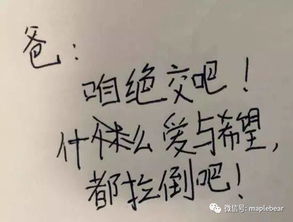 爸：
咱绝交吧！
什么爱与希望，
都拉倒吧！
微信号: maplebear